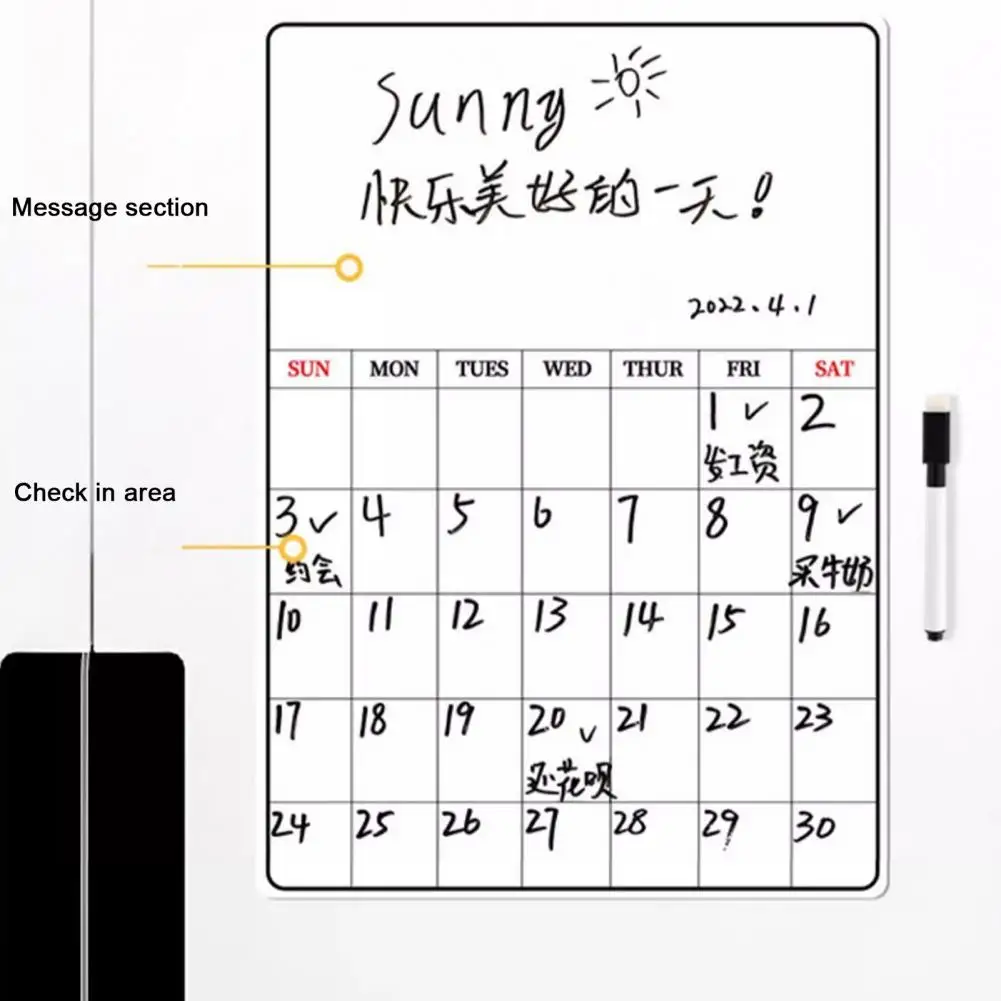 Sunny
快乐美好的一天!
Message section
2022.4.1
SUN MON TUES WED THUR FRI SAT
1 ✓ 2
发工资
Check in area
3 ✓ 4 5 6 7 8 9 ✓
约会 买牛奶
10 11 12 13 14 15 16
17 18 19 20 ✓ 21 22 23
还花呗
24 25 26 27 28 29 30